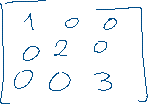 1 0 0
0 2 0
0 0 3